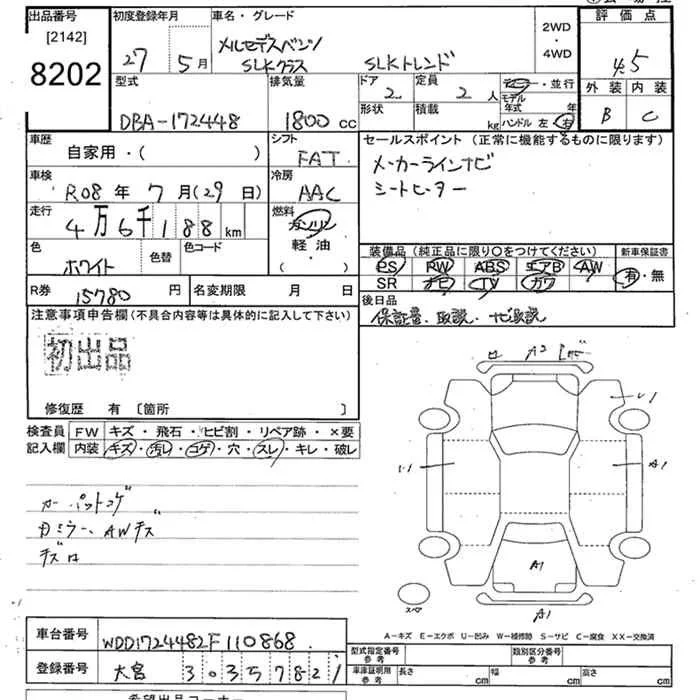 出品番号 初度登録年月 車名・グレード 2WD・4WD 評価点
[2142]
8202
27 5月
メルセデスベンツ
SLKクラス SLKトレンド
4.5
型式 排気量 ドア 定員 ・並行 外装 内装
DBA-172448 1800 cc 2 2人
形状 積載 kg モデル年式 年
ハンドル 左 右
B C
車歴 シフト セールスポイント (正常に機能するものに限ります)
自家用・( ) FAT
メーカーラインナビ
シートヒーター
車検 冷房
R08年 7月(29日) AAC
走行 燃料
4万6千188km ガソリン
軽油
・( )
色 色替 色コード
ホワイト
装備品 (純正品に限り○をつけてください) 新車保証書
PS PW ABS エアB AW 有・無
SR ナビ TV カワ
R券 15780円 名変期限 月 日
後日品
保証書、取説、ナビ取説
注意事項申告欄(不具合内容等は具体的に記入して下さい)
初出品
修復歴 有 〔箇所 〕
検査員記入欄
FW キズ・飛石・ヒビ割・リペア跡・×要
内装 キズ・汚レ・コゲ・穴・スレ・キレ・破レ
カーペットコゲ
AWキズ
A1
A1
A1
スペア
A-キズ E-エクボ U-凹み W-補修跡 S-サビ C-腐食 XX-交換済
車台番号 WDD1724482F110868
登録番号 大宮 303 57821
型式指定番号 参考 類別区分番号 参考
車庫証明用 参考 長さ cm 幅 cm 高さ cm
希望出品コーナー